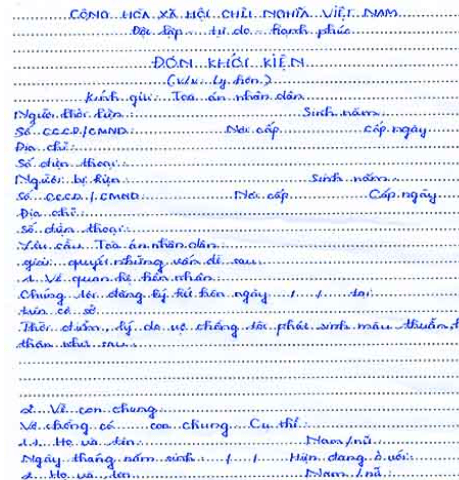 CỘNG HÒA XÃ HỘI CHỦ NGHĨA VIỆT NAM
Độc lập tự do hạnh phúc
ĐƠN KHỞI KIỆN
(V/v: Ly hôn.)
Kính gửi: Tòa án nhân dân
Người khởi kiện: Sinh năm:
Số CCCD/CMND: Nơi cấp Cấp ngày
Địa chỉ:
Số điện thoại:
Người bị kiện: Sinh năm:
Số CCCD/CMND: Nơi cấp Cấp ngày
Địa chỉ:
Số điện thoại:
Yêu cầu Tòa án nhân dân
giải quyết những vấn đề sau:
1. Về quan hệ hôn nhân:
Chúng tôi đăng ký kết hôn ngày / / tại
trên cơ sở
Thời điểm, lý do vợ chồng tôi phát sinh mâu thuẫn,
thân như sau:
2. Về con chung
Vợ chồng có con chung Cụ thể:
1. Họ và tên: Nam/nữ:
Ngày tháng năm sinh: / / Hiện đang ở với:
2. Họ và tên Nam/nữ: